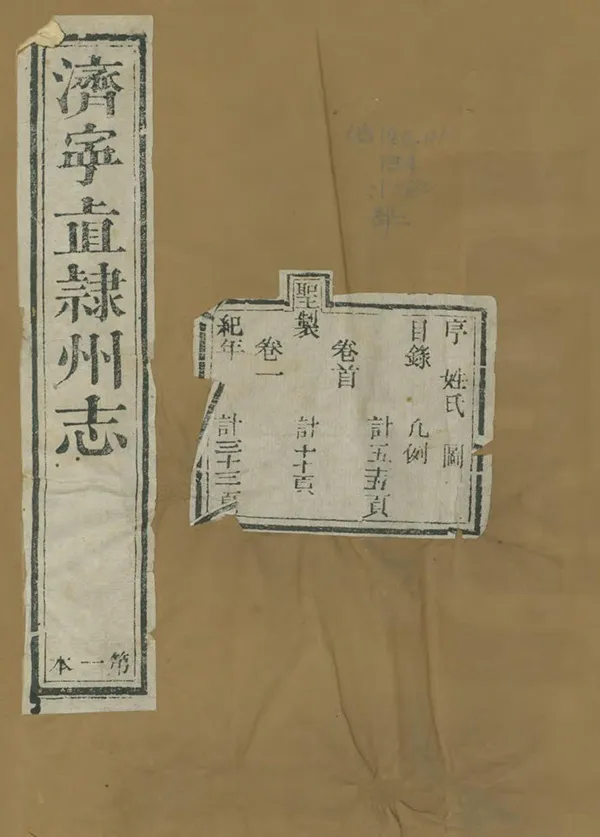 濟寧直隸州志
第一本
序 姓氏 圖
目錄 凡例
計五十五頁
卷首
聖製
計 頁
卷一
紀年
計三十三頁